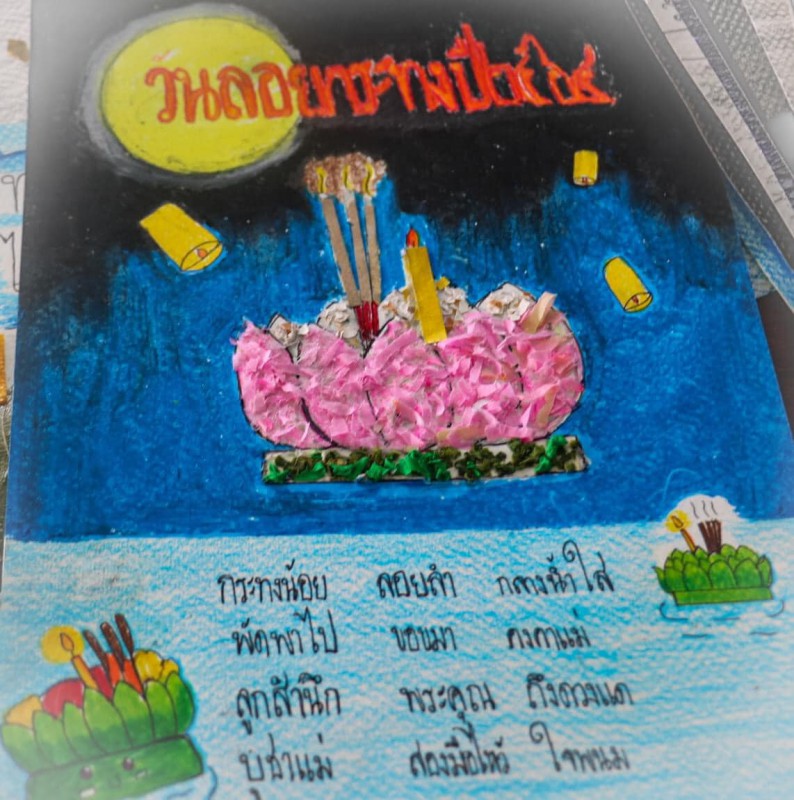 วันลอยกระทงปี๒๕๖๕
กระทงน้อย ลอยลำ กลางน้ำใส
พัดพาไป ขอขมา คงคาแม่
ลูกสำนึก พระคุณ ถึงดวงแด
บูชาแม่ สองมือไหว้ ใจพนม